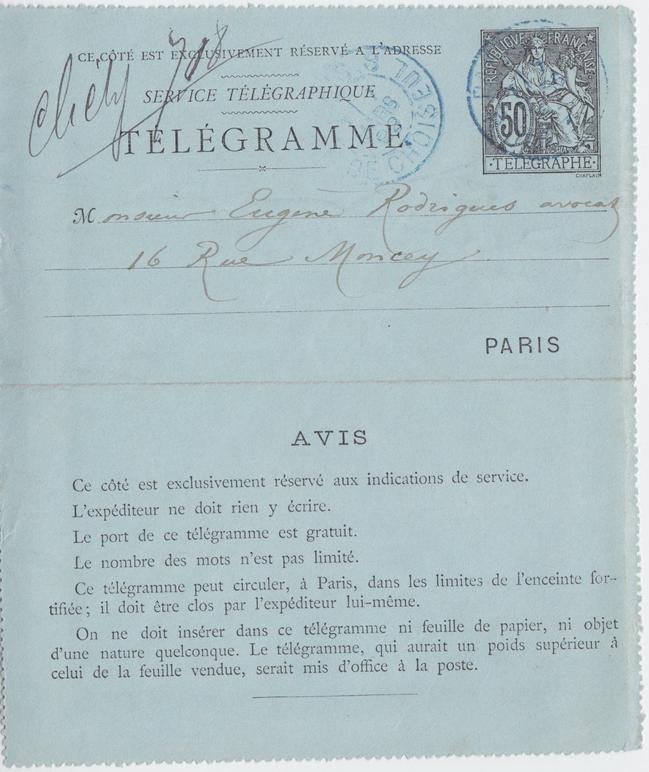 Clichy 708
CE CÔTÉ EST EXCLUSIVEMENT RÉSERVÉ A L'ADRESSE
SERVICE TÉLÉGRAPHIQUE
TÉLÉGRAMME
RÉPUBLIQUE FRANÇAISE
50
TÉLÉGRAPHE
CHAPLAIN
DE CHOISEUL
Monsieur Eugene Rodrigues avocat
16 Rue Moncey
PARIS
AVIS
Ce côté est exclusivement réservé aux indications de service.
L'expéditeur ne doit rien y écrire.
Le port de ce télégramme est gratuit.
Le nombre des mots n'est pas limité.
Ce télégramme peut circuler, à Paris, dans les limites de l'enceinte for-
tifiée; il doit être clos par l'expéditeur lui-même.
On ne doit insérer dans ce télégramme ni feuille de papier, ni objet
d'une nature quelconque. Le télégramme, qui aurait un poids supérieur à
celui de la feuille vendue, serait mis d'office à la poste.